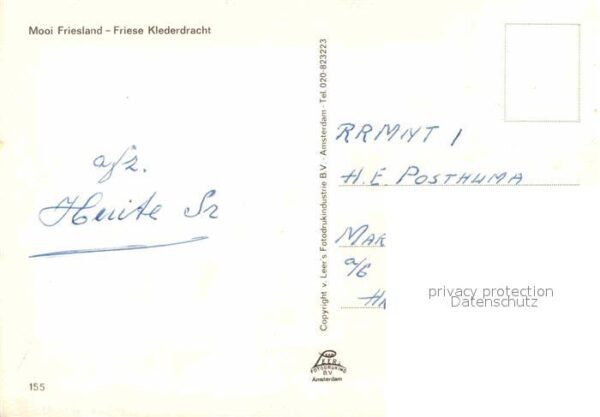 Mooi Friesland – Friese Klederdracht
afz.
Huite Sr
155
Copyright v. Leer's Fotodrukindustrie B.V. - Amsterdam - Tel. 020-823223
LEER'S
FOTODRUKIND.
B.V.
Amsterdam
RRMNT 1
H.E. POSTHUMA
MAR
a/b
privacy protection
Datenschutz